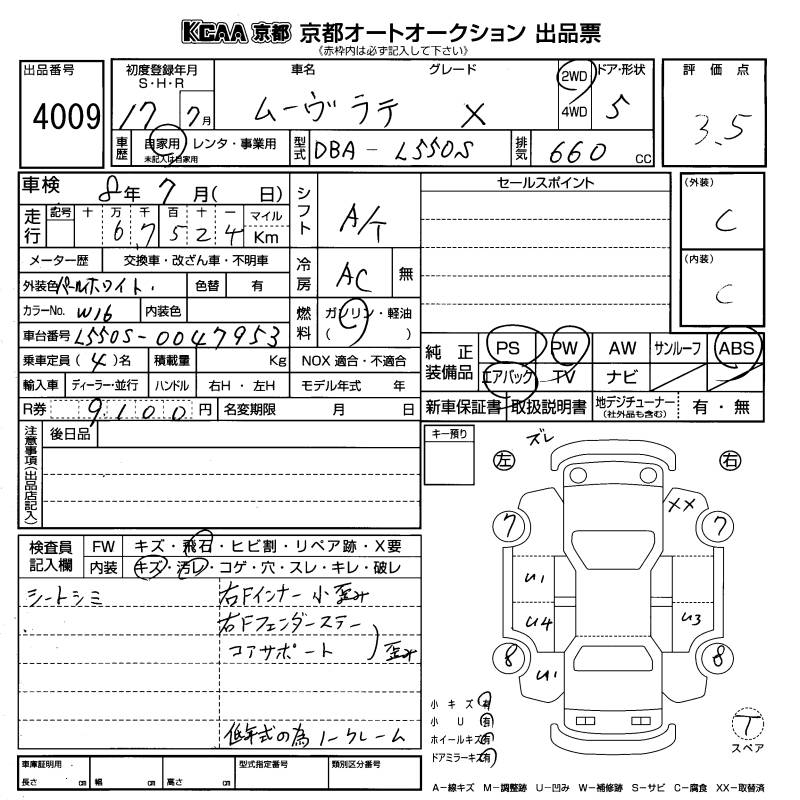 KCAA 京都 京都オートオークション 出品票
《赤枠内は必ず記入して下さい》
出品番号
4009
初度登録年月
S・H・R
17 7月
車名 グレード
ムーヴ ラテ X
2WD
4WD
ドア・形状
5
評価点
3.5
車歴
自家用・レンタ・事業用
未記入は自家用
型式
DBA - L550S
排気
660 cc
車検 8年 7月( 日)
走行
記号 十 万 千 百 十 一 マイル
6 7 5 2 4 Km
メーター歴 交換車・改ざん車・不明車
外装色 パールホワイト. 色替 有
カラーNo. W16 内装色
車台番号 L550S-0047953
乗車定員(4)名 積載量 Kg
輸入車 ディーラー・並行 ハンドル 右H・左H
R券 9100円 名変期限 月 日
シフト A/T
冷房 AC 無
燃料 ガソリン・軽油
( )
NOX適合・不適合
モデル年式 年
セールスポイント
(外装)
C
(内装)
C
純正装備品
PS PW AW サンルーフ ABS
エアバック TV ナビ
新車保証書 取扱説明書 地デジチューナー
(社外品も含む)
有・無
注意事項(出品店記入)
後日品
キー預り
検査員記入欄
FW キズ・飛石・ヒビ割・リペア跡・X要
内装 キズ・汚レ・コゲ・穴・スレ・キレ・破レ
シートシミ
右Fインナー小歪み
右Fフェンダーステー
コアサポート
歪み
低年式の為ノークレーム
車庫証明用
長さ cm 幅 cm 高さ cm
型式指定番号 類別区分番号
ズレ
左 右
XX
7 7
U1
U4 U3
8 8
U1
小キズ 有
小U 有
ホイールキズ 有
ドアミラーキズ 有
T
スペア
A-線キズ M-調整跡 U-凹み W-補修跡 S-サビ C-腐食 XX-取替済